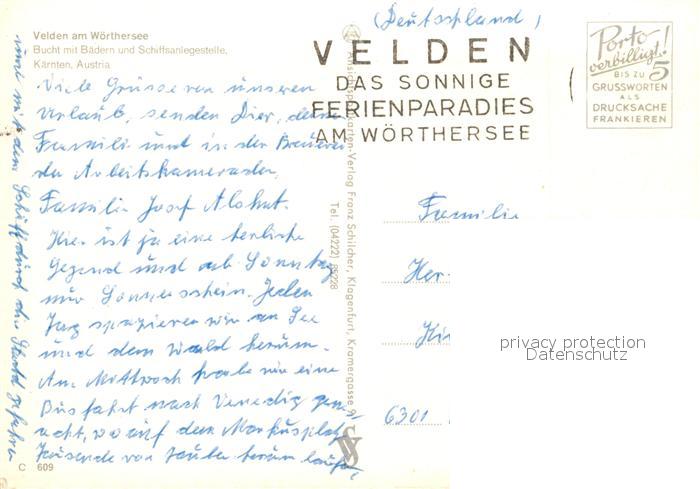 Velden am Wörthersee
Bucht mit Bädern und Schiffsanlegestelle,
Kärnten, Austria
Viele Grüsse von unseren
Urlaub, senden Dir, deine
Famili und in der Brauerei
die Arbeitskameraden
Familie Josef
Hier ist ja eine herliche
Gegend und ab Sonntag
nur Sonnenschein. Jeden
Tag spazieren wir am See
und dem Wald herum.
Am Mittwoch habe wir eine
Busfahrt nach Venedig gem-
acht, wo auf dem Markusplatz
Tausende von Tauben herum laufen,
und mit dem Schiff durch die Stadt gefahren
C 609
Ansichtskarten-Verlag Franz Schilcher, Klagenfurt, Kramergasse 9
Tel. (04222)
(Deutschland)
VELDEN
DAS SONNIGE
FERIENPARADIES
AM WÖRTHERSEE
Porto
verbilligt!
BIS ZU 5
GRUSSWORTEN
ALS
DRUCKSACHE
FRANKIEREN
Familie
Her
6301
privacy protection
Datenschutz